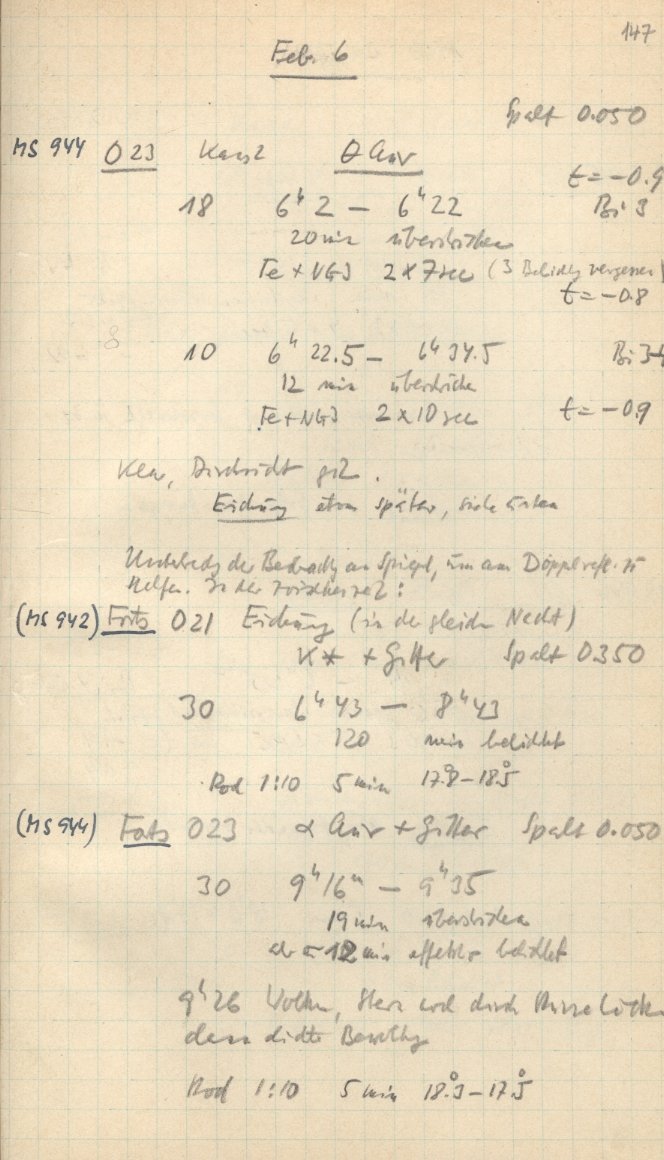 147
Feb. 6
Spalt 0.050
MS 944 O 23 θ Aur
t = -0.9
18 6ʰ2 — 6ʰ22 Bi 3
20 min überstrichen
Fe + NG3 2 x 7 sec (3 Belichtg vergessen)
t = -0.8
8
10 6ʰ22.5 — 6ʰ34.5 Bi 3-4
12 min überstrichen
Fe + NG3 2 x 10 sec t = -0.9
Klar, Durchsicht gut.
Eichung etwas später, siehe unten
Unterbrechg der Beobachtg an Spiegel, um am Doppelrefl. zu
helfen. In der Zwischenzeit:
(MS 942) Forts O 21 Eichung (in der gleichen Nacht)
K* + Gitter Spalt 0.350
30 6ʰ43 — 8ʰ43
120 min belichtet
Rod 1:10 5 min 17.°8 - 18.°5
(MS 944) Forts O 23 α Aur + Gitter Spalt 0.050
30 9ʰ16ᵐ — 9ʰ35
19 min überstrichen
12 min effektiv belichtet
9ʰ26 Wolken, Stern noch durch Lücken
dann dichte Bewölkg
Rod 1:10 5 min 18.°3 - 17.°5